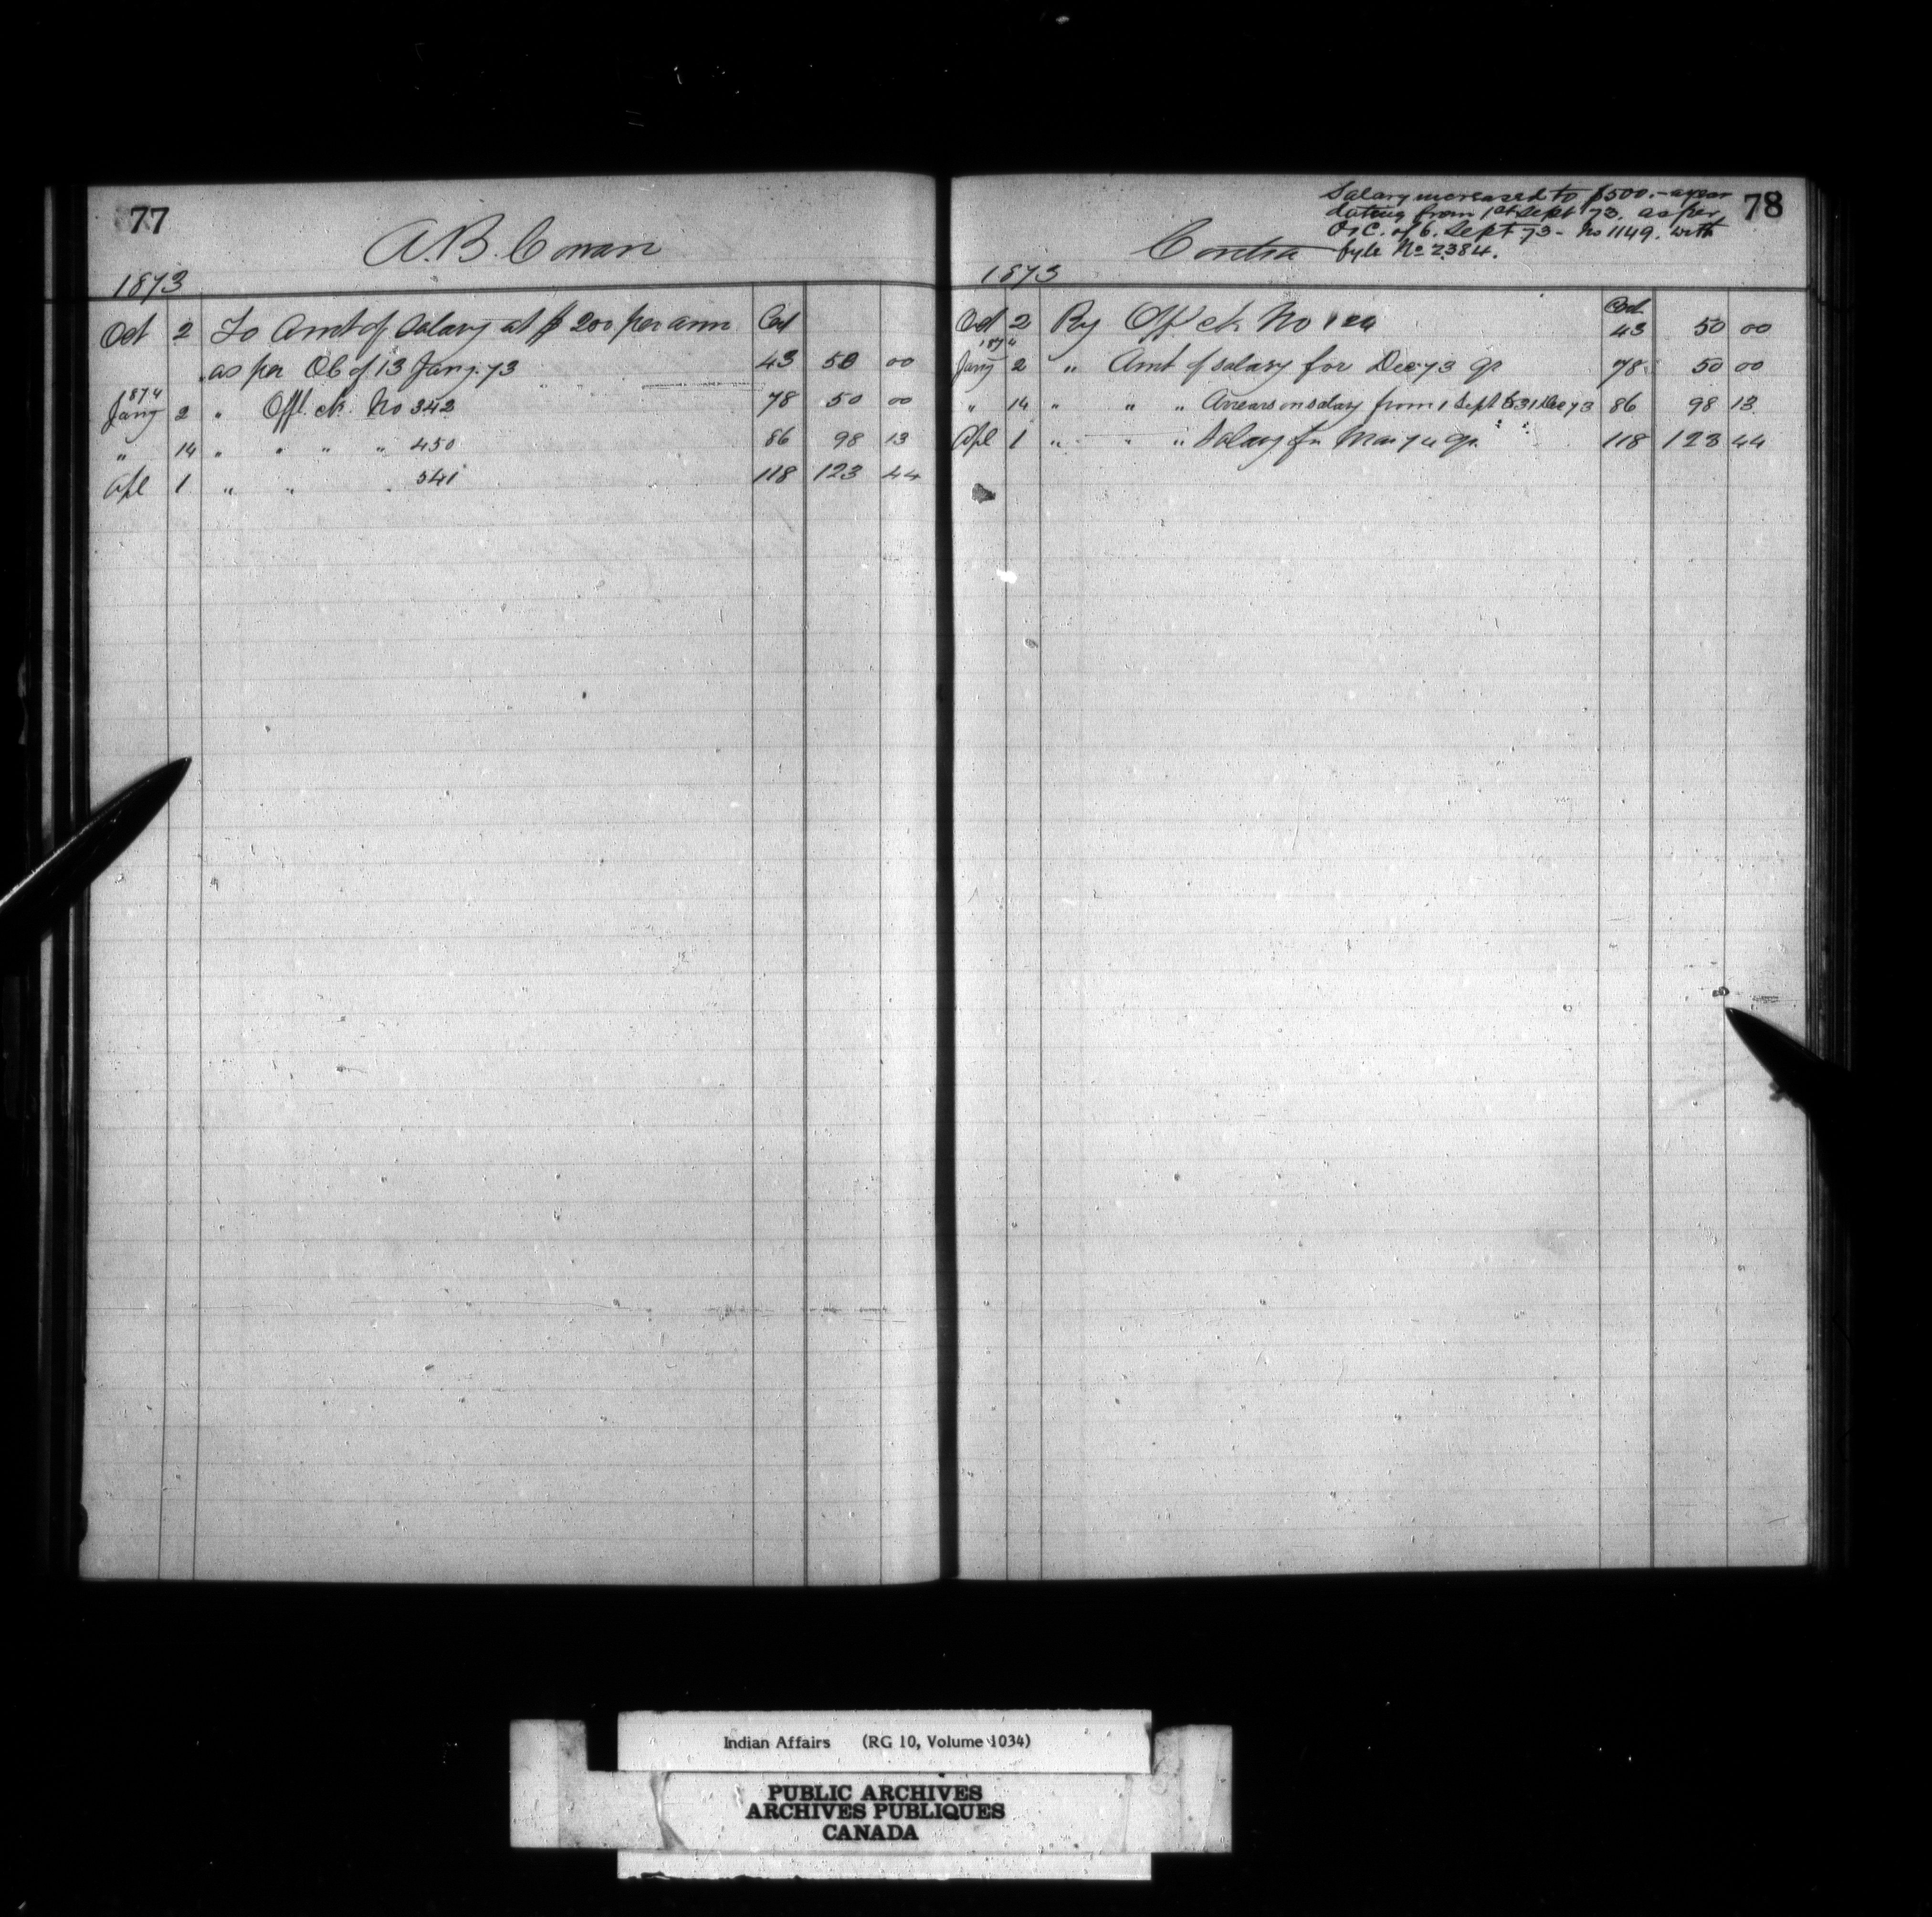 77
A. B. Cowan
1873
Oct 2 To Amt of Salary at $ 200 per ann Cod
as per Ob of 13 Jany. 73 43 50 00
1874
Jany 2 " Offl. ck. No 342 78 50 00
" 14 " " " " 450 86 98 13
Apl 1 " " " 541 118 123 44
78
Salary increased to $500.- a year
dating from 1st Sept 73. as per
O. C. of 6. Sept 73 - No 1149. with
fyle No 2384.
Contra
1873
Cod
Oct 2 By Off ck No 43 50 00
1874
Jany 2 " Amt of salary for Dec 73 qr 78 50 00
" 14 " " " Arrears on salary from 1 Sept to 31 Dec 73 86 98 13
Apl 1 " " " Salary for Mar 74 qr. 118 123 44
Indian Affairs (RG 10, Volume 1034)
PUBLIC ARCHIVES
ARCHIVES PUBLIQUES
CANADA